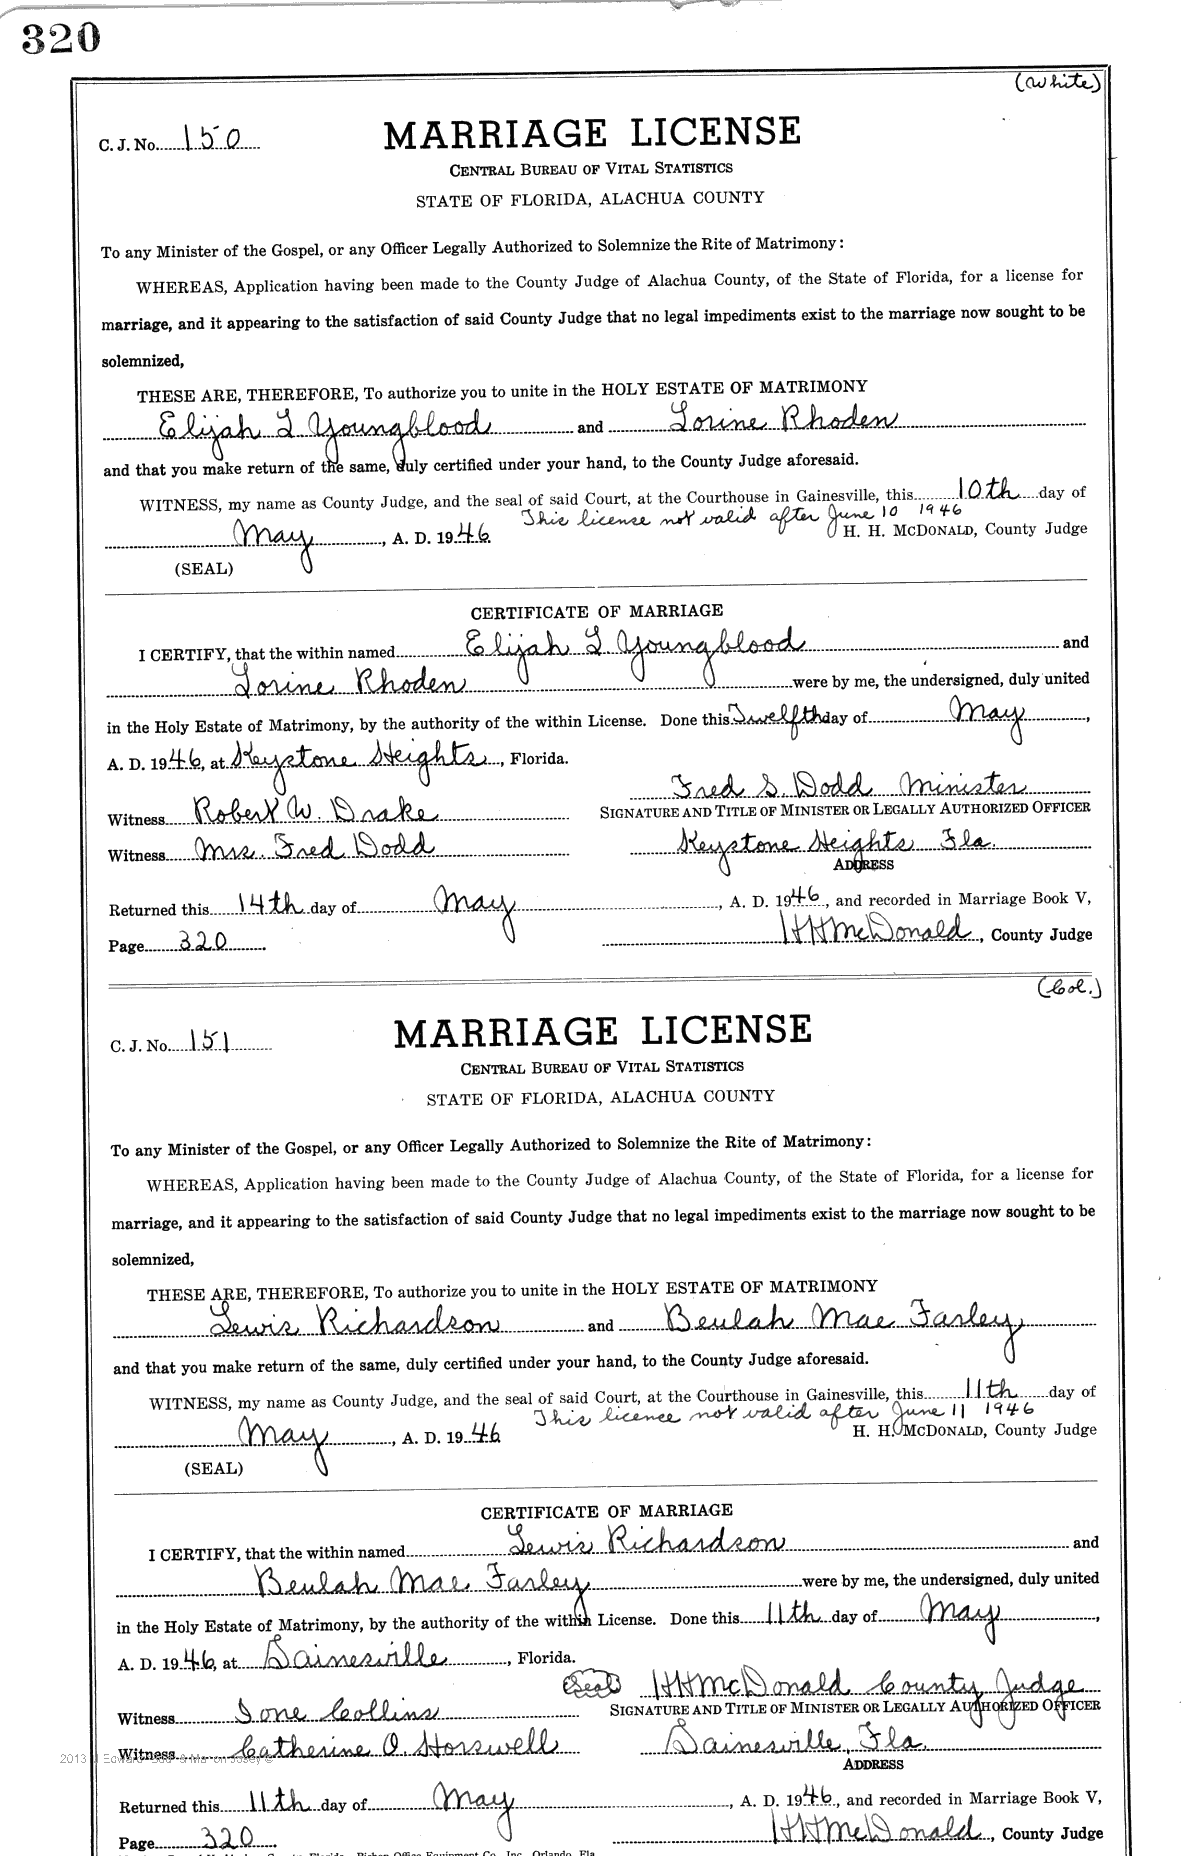 320
(White)
C. J. No. 150
MARRIAGE LICENSE
CENTRAL BUREAU OF VITAL STATISTICS
STATE OF FLORIDA, ALACHUA COUNTY
To any Minister of the Gospel, or any Officer Legally Authorized to Solemnize the Rite of Matrimony:
WHEREAS, Application having been made to the County Judge of Alachua County, of the State of Florida, for a license for
marriage, and it appearing to the satisfaction of said County Judge that no legal impediments exist to the marriage now sought to be
solemnized,
THESE ARE, THEREFORE, To authorize you to unite in the HOLY ESTATE OF MATRIMONY
Elijah L Youngblood and Lorine Rhoden
and that you make return of the same, duly certified under your hand, to the County Judge aforesaid.
WITNESS, my name as County Judge, and the seal of said Court, at the Courthouse in Gainesville, this 10th day of
This license not valid after June 10 1946
May, A. D. 1946. H. H. MCDONALD, County Judge
(SEAL)
CERTIFICATE OF MARRIAGE
I CERTIFY, that the within named Elijah L Youngblood and
Lorine Rhoden were by me, the undersigned, duly united
in the Holy Estate of Matrimony, by the authority of the within License. Done this Twelfth day of May,
A. D. 1946, at Keystone Heights, Florida.
Fred S. Dodd Minister
Witness Robert W. Drake SIGNATURE AND TITLE OF MINISTER OR LEGALLY AUTHORIZED OFFICER
Witness Mrs. Fred Dodd Keystone Heights Fla.
ADDRESS
Returned this 14th day of May, A. D. 1946, and recorded in Marriage Book V,
Page 320 HHMcDonald, County Judge
(Col.)
C. J. No. 151
MARRIAGE LICENSE
CENTRAL BUREAU OF VITAL STATISTICS
STATE OF FLORIDA, ALACHUA COUNTY
To any Minister of the Gospel, or any Officer Legally Authorized to Solemnize the Rite of Matrimony:
WHEREAS, Application having been made to the County Judge of Alachua County, of the State of Florida, for a license for
marriage, and it appearing to the satisfaction of said County Judge that no legal impediments exist to the marriage now sought to be
solemnized,
THESE ARE, THEREFORE, To authorize you to unite in the HOLY ESTATE OF MATRIMONY
Lewis Richardson and Beulah Mae Farley
and that you make return of the same, duly certified under your hand, to the County Judge aforesaid.
WITNESS, my name as County Judge, and the seal of said Court, at the Courthouse in Gainesville, this 11th day of
This licence not valid after June 11 1946
May, A. D. 1946 H. H. MCDONALD, County Judge
(SEAL)
CERTIFICATE OF MARRIAGE
I CERTIFY, that the within named Lewis Richardson and
Beulah Mae Farley were by me, the undersigned, duly united
in the Holy Estate of Matrimony, by the authority of the within License. Done this 11th day of May,
A. D. 1946, at Gainesville, Florida.
Seal HHMcDonald County Judge
Witness Ione Collins SIGNATURE AND TITLE OF MINISTER OR LEGALLY AUTHORIZED OFFICER
Witness Catherine O. Horswell Gainesville, Fla.
2013
ADDRESS
Returned this 11th day of May, A. D. 1946, and recorded in Marriage Book V,
Page 320. HHMcDonald, County Judge